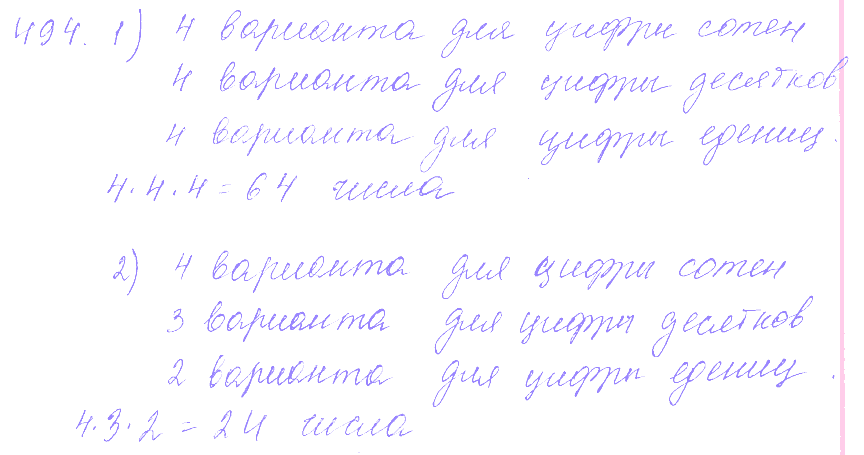 494. 1) 4 варианта для цифры сотен
4 варианта для цифры десятков
4 варианта для цифры едениц.
4·4·4=64 числа
2) 4 варианта для цифры сотен
3 варианта для цифры десятков
2 варианта для цифры едениц.
4·3·2=24 числа